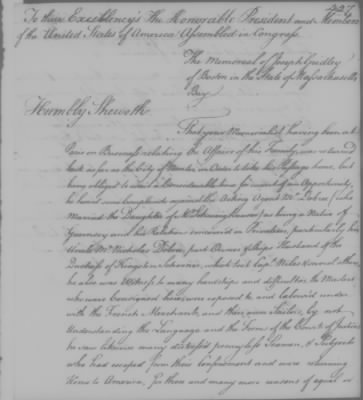 427
To their Excellency's The Honorable President and Members
of the United States of America Assembled in Congress
The Memorial of Joseph Gridley
of Boston in the State of Massachusetts
Bay
Humbly Sheweth
That your Memorialist having been at
Paris on Business relating the Affairs of his Family, was returned
back as far as the City of Nantes in Order to take his Passage home, but
being obliged to wait a Considerable time for want of an Opportunity,
he heard some Complaints against the Acting Agent Mr. Dobree (who
Married the Daughter of Mr. Schweighauser) as being a Native of
Guernsey and his Relations concerned in Privateers, particularly his
Uncle Mr. Nicholas Dobree, part Owner & Ships Husband of the
Dutchess of Kingston Privateer, which took Capt. Niles & several others,
he also was Witness to many hardships and difficulties the Masters
who were Consigned here were exposed to and labour'd under
with the French Merchants and their own Sailors, by not
Understanding the Language and the Forms of the Courts of Justice
he saw likewise many distressed pennyless Seamen, & Subjects
who had escaped from their Confinement and were returning
Home to America, for these and many more reasons of equal or